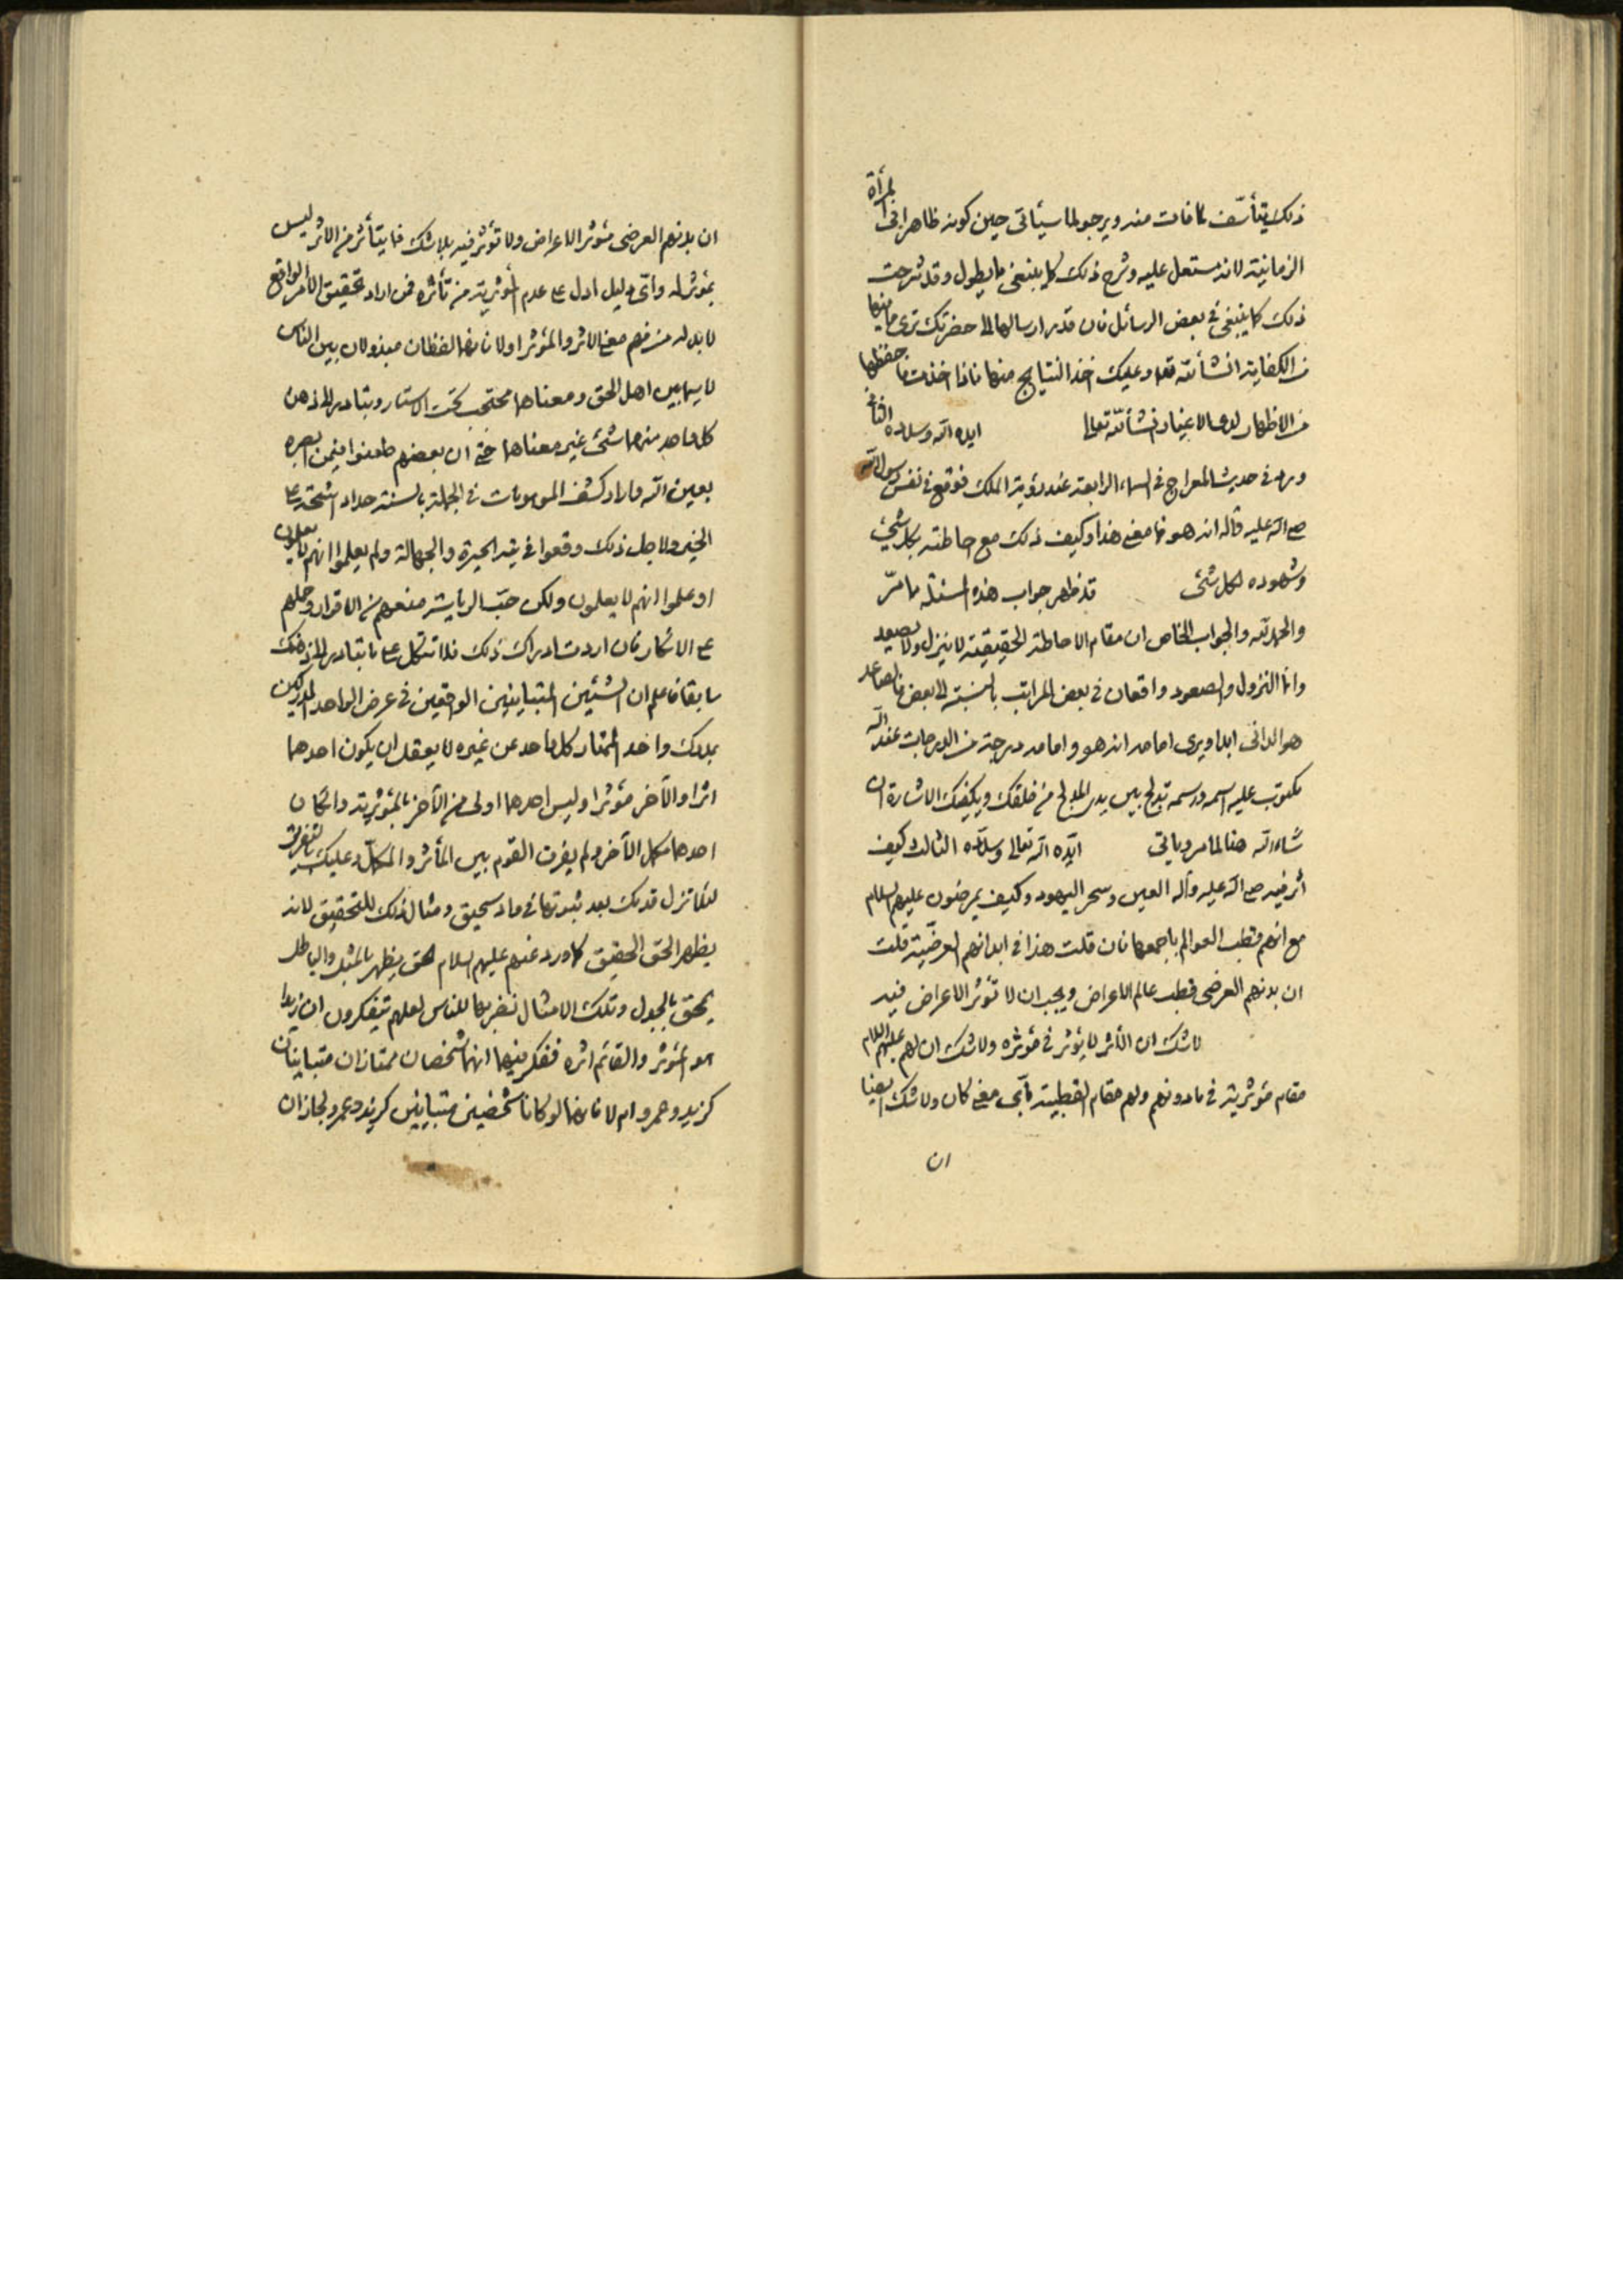 ذلك يتأسّف لما فات منه ويرجو لما سيأتى حين كونه ظاهرا فى المرأة
الزمانية لانه مستعل عليه وشرح ذلك كما ينبغى مما يطول وقد شرحت
ذلك كما ينبغى فى بعض الرسائل فان قدر ارسالها الى حضرتك ترى ما فيها
من الكفاية انشأ الله تعه وعليك اخذ النتايج منها فاذا اخذت فاحفظها
من الاظهار لدى الاغيار انشأ الله تعالى ايده الله وسدده الثانى
ورد فى حديث المعراج فى السماء الرابعة عند رؤية الملك فوقع فى نفس رسول الله
صلى الله عليه وآله انه هو فما معنى هذا وكيف ذلك مع احاطته بكل شئ
وشهوده لكل شئ قد ظهر جواب هذه المسئلة مما مرّ
والحمد لله والجواب الخاص ان مقام الاحاطة الحقيقية لا ينزل ولا يصعد
وانما النزول والصعود واقعان فى بعض المراتب بالنسبة الى بعض فالصاعد
هو الدانى ابدا ويرى امامه انه هو وامامه درجة من الدرجات عند الله
مكتوب عليه اسمه ورسمه تدلج بين يدى المدلج من خلقك ويكفيك الاشارة ان
شاء الله هنا لما مر وياتى ايّده الله تعالى وسدّده الثالث وكيف
أثر فيه صلى الله عليه وآله العين وسحر اليهود وكيف يمرضون عليهم السلام
مع انهم قطب العوالم باجمعها فان قلت هذا فى ابدانهم العرضيّة قلت
ان بدنهم العرضى قطب عالم الاعراض ويجب ان لا تؤثر الاعراض فيه
لا شك ان الأثر لا يؤثر فى مؤثره ولا شك ان لهم عليهم السلام
مقام مؤثرية فى ما دونهم ولهم مقام القطبية بأى معنى كان ولا شك ايضا
ان
ان بدنهم العرضى مؤثر الاعراض ولا تؤثر فيه بلا شك فما يتأثر من الاثر ليس
بمؤثر له وأىّ دليل ادل على عدم مؤثرية من تأثره فمن اراد تحقيق الأمر الواقع
لا بد له من فهم معنى الاثر والمؤثر اولا فانهما لفظان مبذولان بين الناس
لا سيما بين اهل الحق ومعناهما محتجب تحت الاستار ويتبادر الى ذهن
كل واحد منهما شئ غير معناهما حتى ان بعضهم طعنوا فيمن ابصره
بعين الله واراد كشف الموهومات فى الجملة بالسنة حداد اشحة على
الخير ولاجل ذلك وقعوا فى تيه الحيرة والجهالة ولم يعلموا انهم لا يعلمون
او علموا انهم لا يعلمون ولكن حبّ الرياسة منعهم من الاقرار وحملهم
على الانكار فان اردت ادراك ذلك فلا تتكل على ما يتبادر الى ذهنك
سابقا فاعلم ان الشئين المتباينين الواقعين فى عرض الواحد المدركين
بمدرك واحد الممتاز كل واحد عن غيره لا يعقل ان يكون احدهما
اثرا والآخر مؤثرا وليس احدهما اولى من الآخر بالمؤثرية وان كان
احدهما مكمل الآخر ولم يفرق القوم بين المأثر والمكمّل وعليك بالتفريق
لئلا تزل قدمك بعد ثبوتها فى واد سحيق ومثال ذلك للتحقيق لانه
يظهر الحق الحقيق كما ورد عنهم عليهم السلام الحق يظهر بالمثل والباطل
يمحق بالجدل وتلك الامثال نضربها للناس لعلهم يتفكرون ان زيدا
هو المؤثر والقائم اثره ففكر فيهما انهما شخصان ممتازان متباينان
كزيد وعمرو ام لا فانهما لو كانا شخصين متباينين كزيد وعمرو لجاز ان